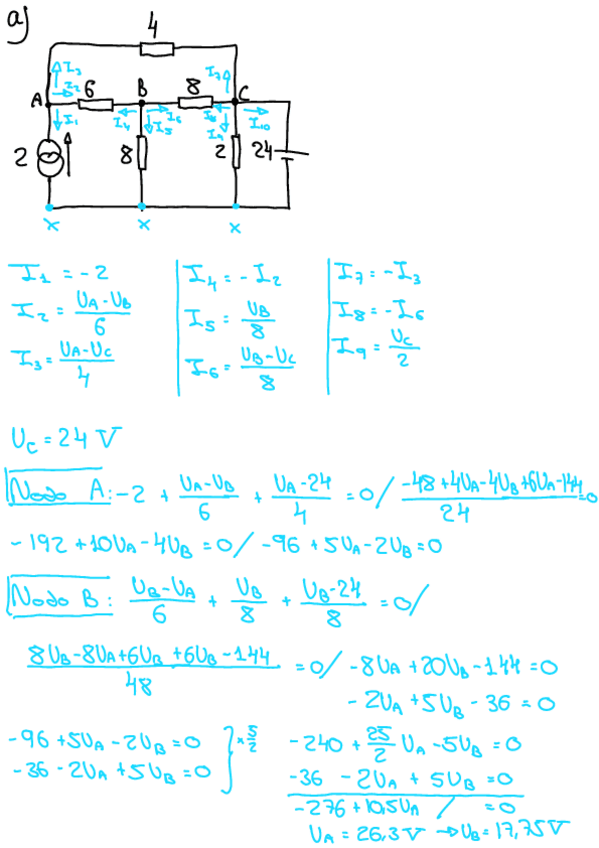 a)
4
I3
I2
6
B
8
I7
C
A
I1
I4
I5
I6
I8
I9
I10
2
8
2
24
x
x
x
I1 = -2
I2 = UA-UB/6
I3 = UA-UC/4
I4 = -I2
I5 = UB/8
I6 = UB-UC/8
I7 = -I3
I8 = -I6
I9 = UC/2
UC = 24 V
Nodo A: -2 + UA-UB/6 + UA-24/4 = 0 / -48+4UA-4UB+6UA-144/24 = 0
-192+10UA-4UB = 0 / -96+5UA-2UB = 0
Nodo B: UB-UA/6 + UB/8 + UB-24/8 = 0 /
8UB-8UA+6UB+6UB-144/48 = 0 / -8UA+20UB-144 = 0
-2UA+5UB-36 = 0
-96+5UA-2UB = 0 } × 5/2
-36-2UA+5UB = 0
-240 + 25/2 UA - 5UB = 0
-36 -2UA + 5UB = 0
-276 + 10,5UA / = 0
UA = 26,3 V → UB = 17,75 V